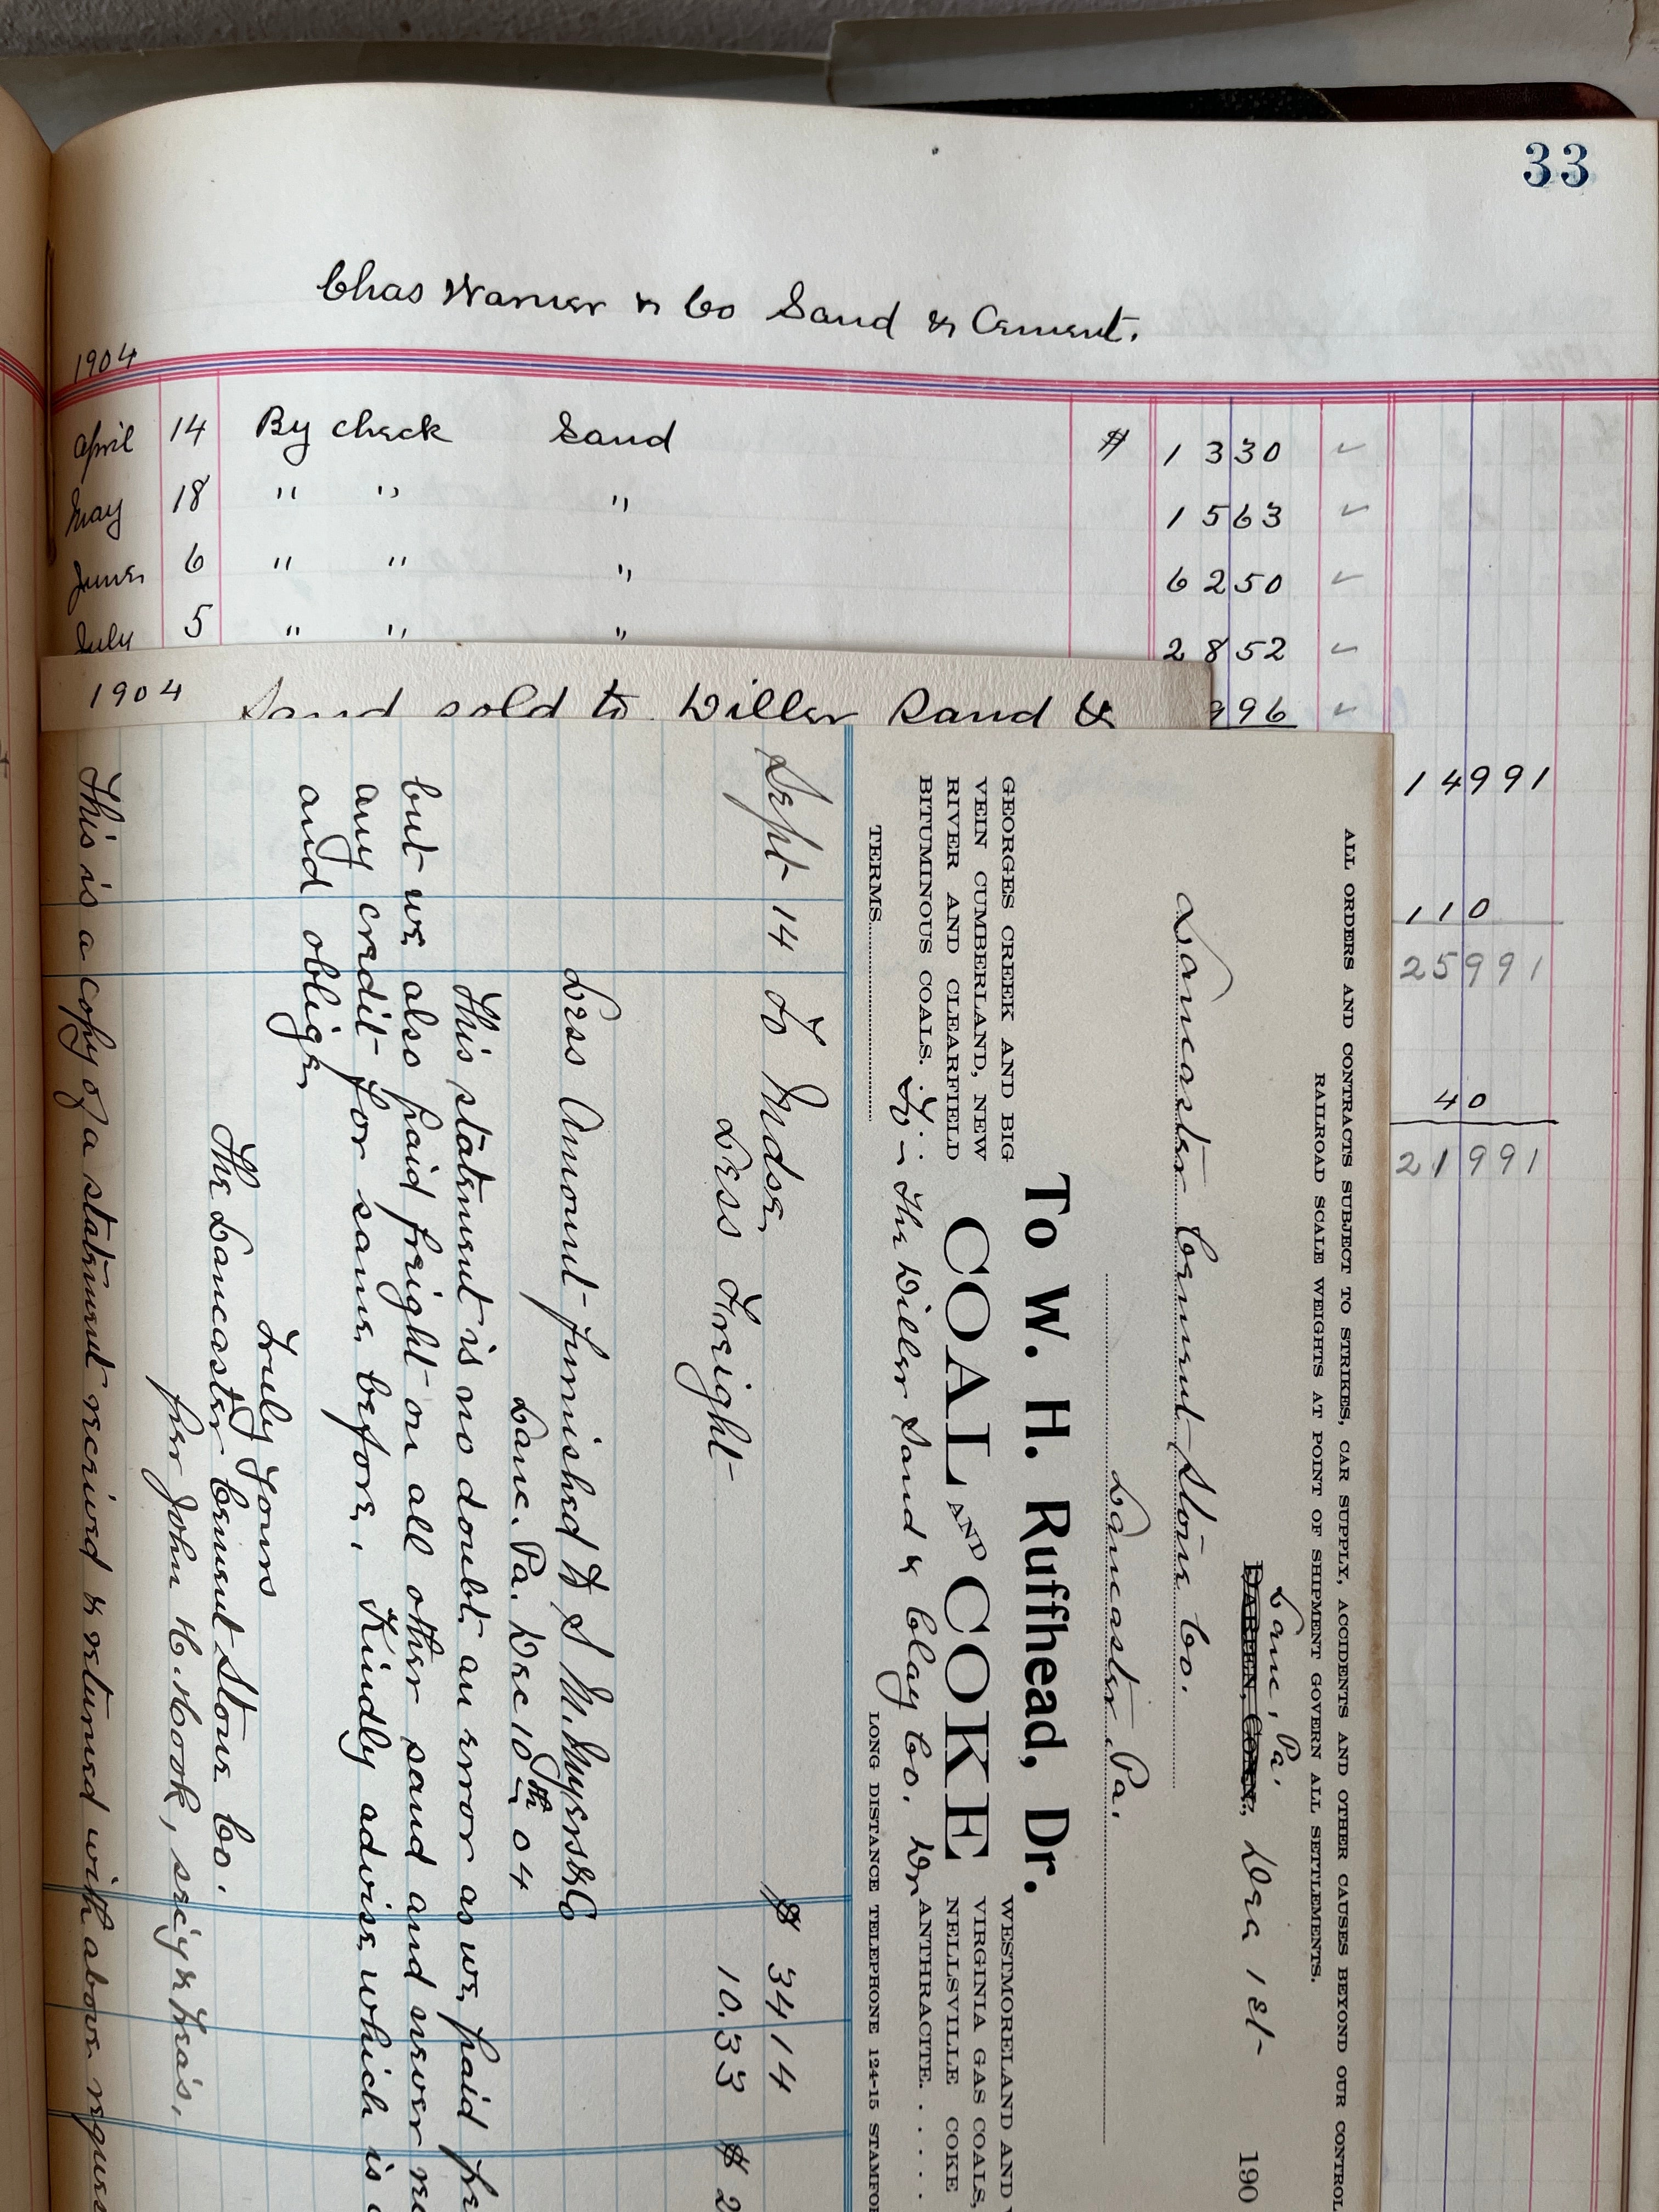 33
Chas Warner & Co Sand & Cement.
1904
April 14 By check Sand $ 13 30 ✓
May 18 " " " 15 63 ✓
June 6 " " " 62 50 ✓
July 5 " " " 28 52 ✓
996 ✓
149 91
110
259 91
40
219 91
1904 Sand sold to Diller Sand &
ALL ORDERS AND CONTRACTS SUBJECT TO STRIKES, CAR SUPPLY, ACCIDENTS AND OTHER CAUSES BEYOND OUR CONTROL
RAILROAD SCALE WEIGHTS AT POINT OF SHIPMENT GOVERN ALL SETTLEMENTS.
Lanc, Pa.
DARIEN, CONN., Dec 1st 190
Lancaster Cement Stone Co.
Lancaster, Pa.
To W. H. Ruffhead, Dr.
COAL AND COKE
GEORGES CREEK AND BIG
VEIN CUMBERLAND, NEW
RIVER AND CLEARFIELD
BITUMINOUS COALS. . .
WESTMORELAND AND
VIRGINIA GAS COALS,
NELLSVILLE COKE
ANTHRACITE. . . . .
To - The Diller Sand & Clay Co. Dr
TERMS
LONG DISTANCE TELEPHONE 124-15 STAMFO
Sept 14 To Mdse, $ 34 14
Less Freight 10.33 $ 2
Less Amount furnished to S M. Myers & Co
Lanc. Pa. Dec 10th 04
This statement is no doubt an error as we paid
but we also paid freight on all other sand and never
any credit for same before. Kindly advise which is
and oblige,
Truly Yours
The Lancaster Cement Stone Co.
per John H. Hook, sec'y & treas.
This is a copy of a statement received & returned with above